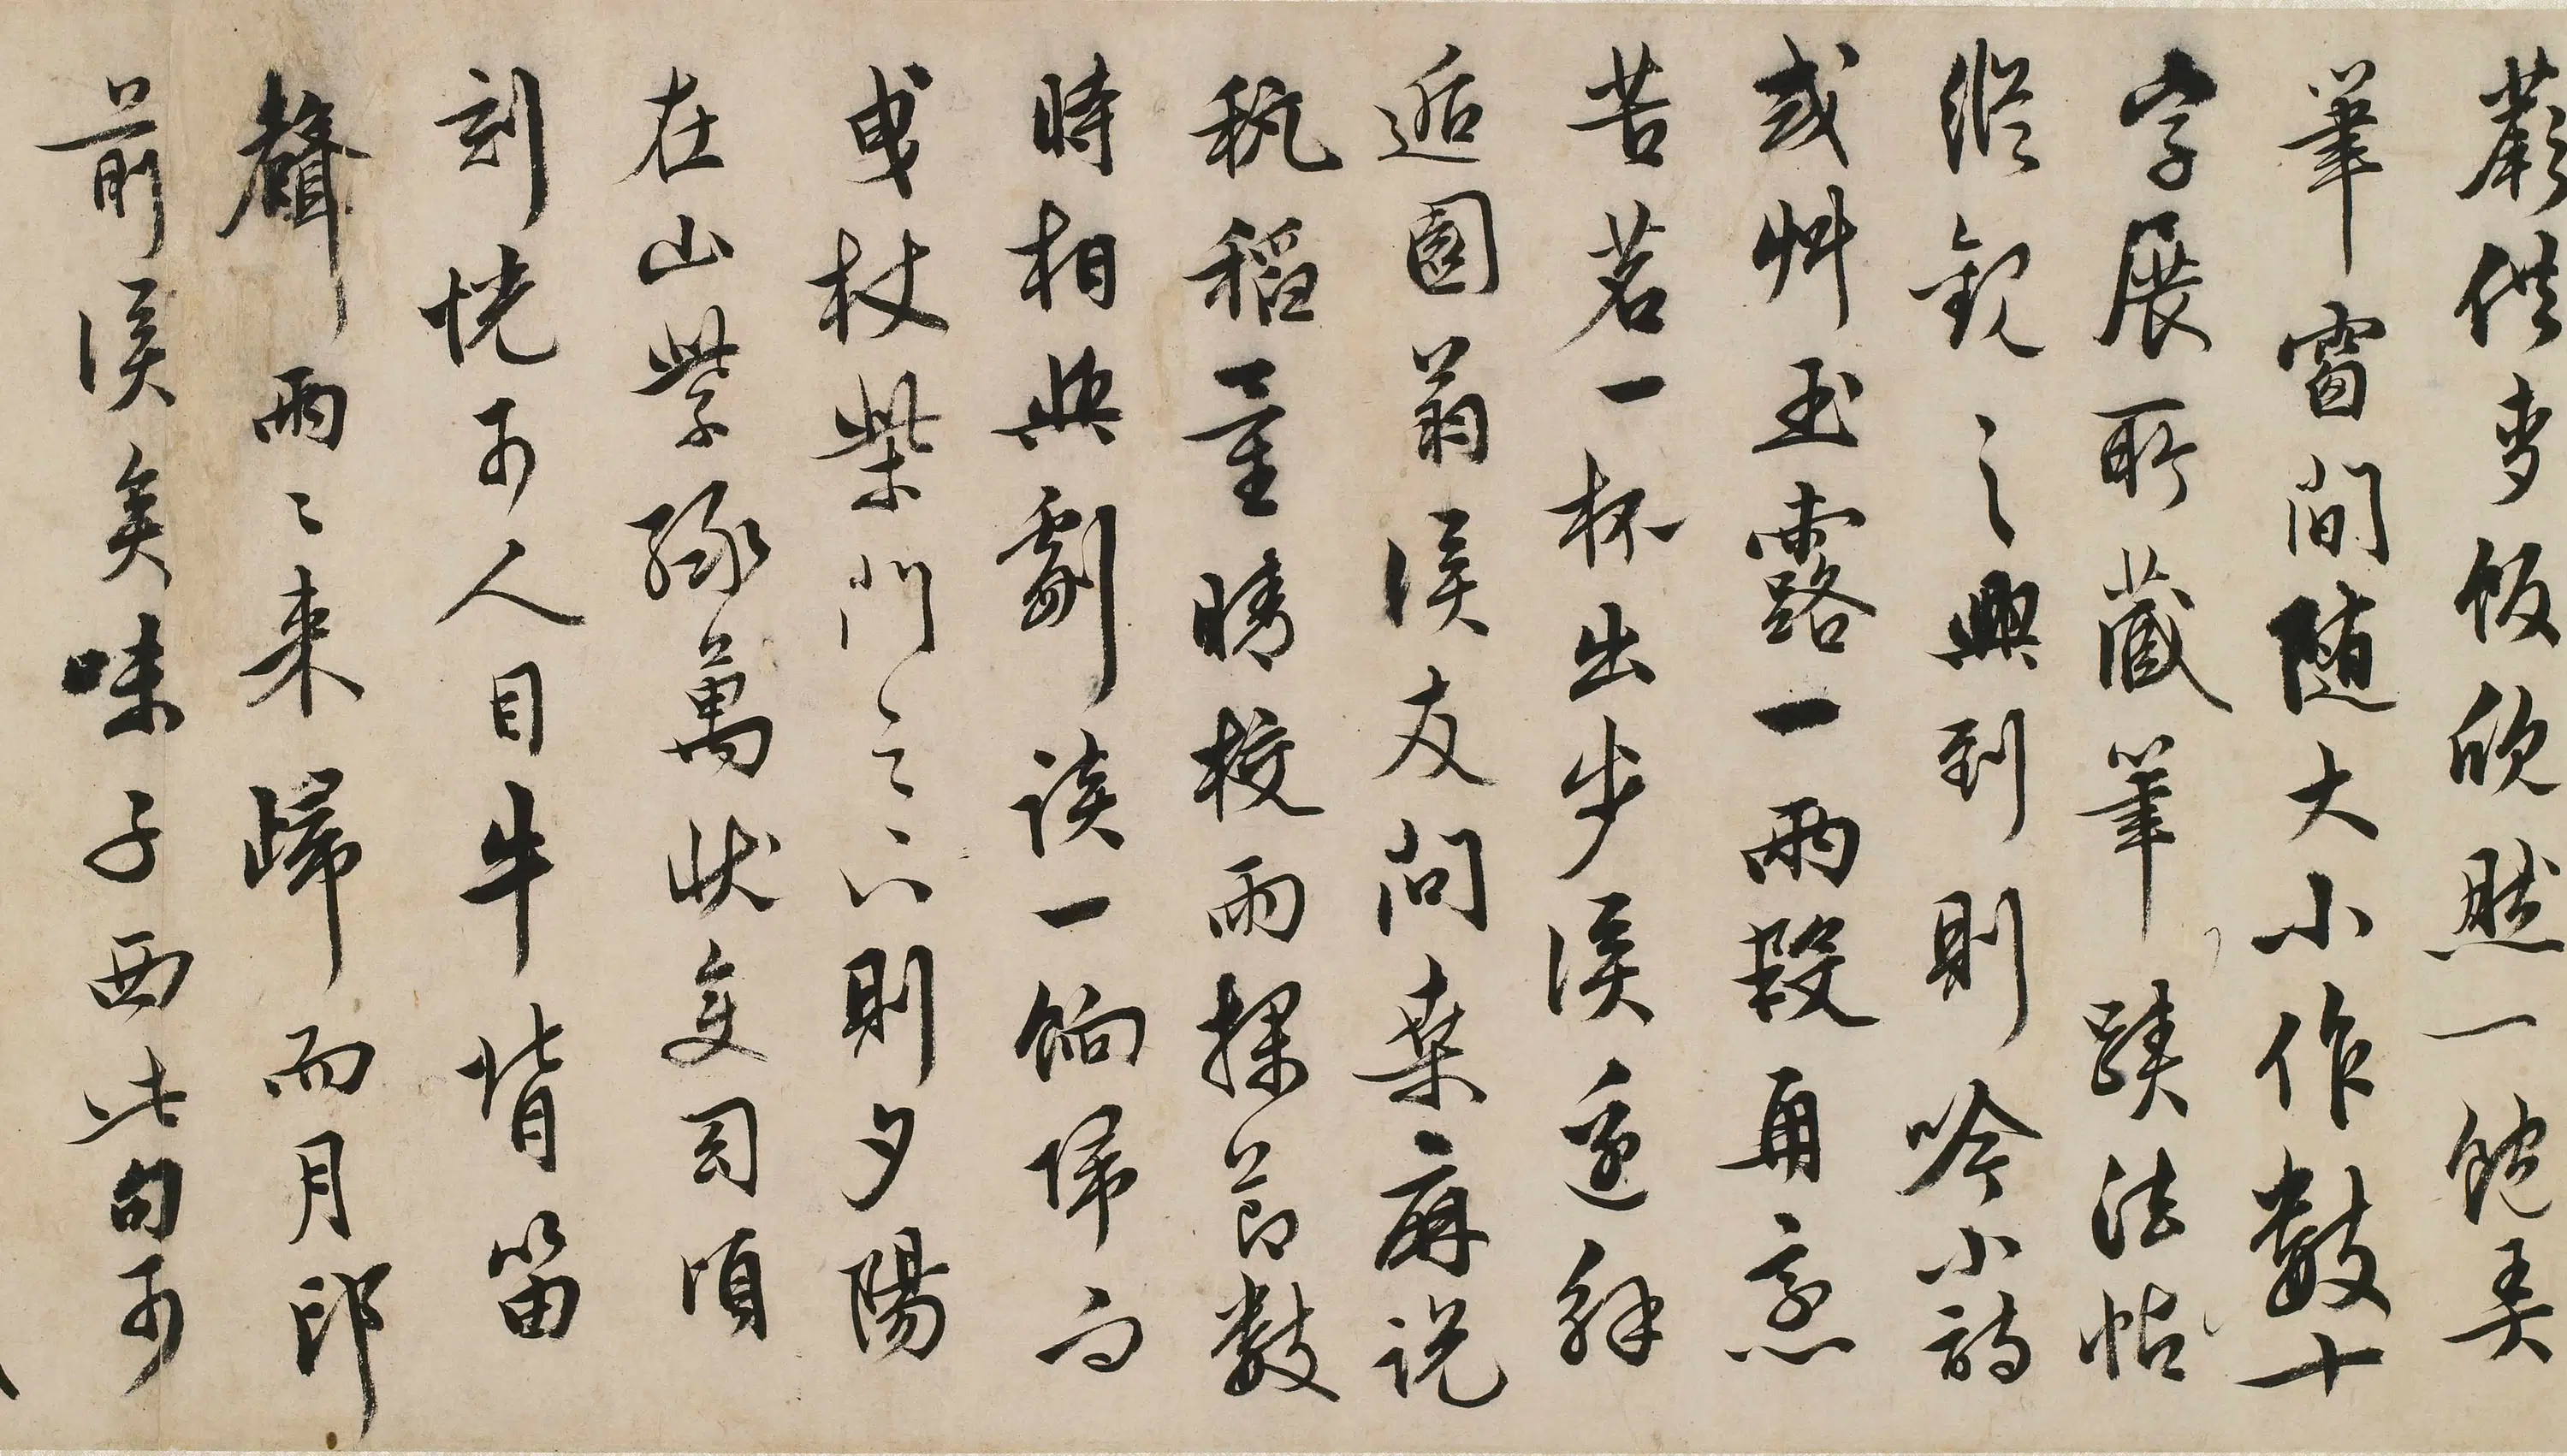 蕨供麥飯欣然一飽弄
筆窗間随大小作數十
字展所藏筆蹟法帖
縱觀之興到則吟小詩
或艸玉露一兩段再烹
苦茗一杯出步溪邊解
逅園翁溪友問桑麻説
秔稻量晴校雨探節數
時相與劇談一餉歸而
曳杖柴門之下則夕陽
在山紫綠萬狀變幻頃
刻恍可人目牛背笛
聲兩〻來歸而月印
前溪矣味子西此句可